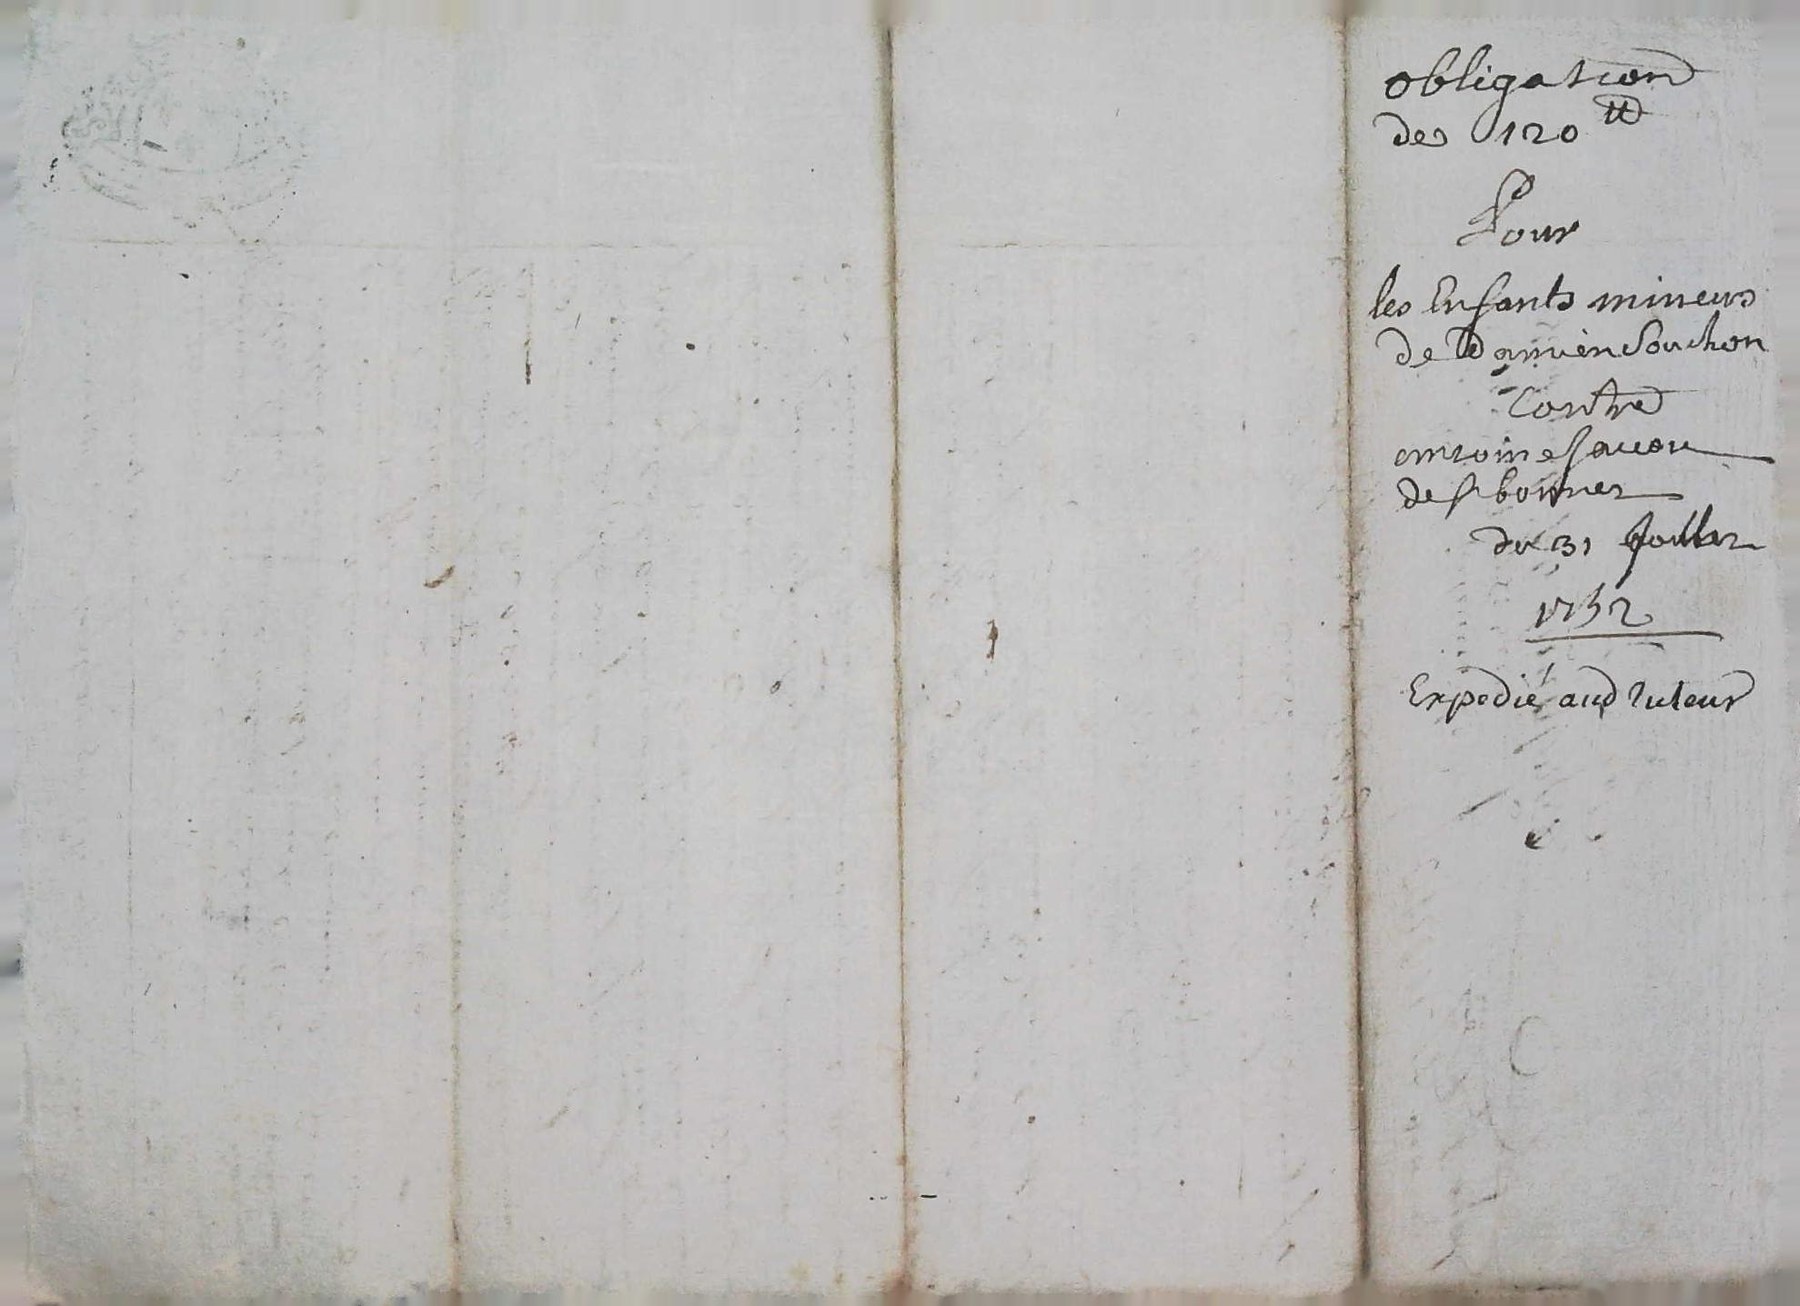 obligation
de 120 ₶
Pour
les Enfants mineurs
de Damien Souchon
Contre
antoine
de St bonnet
du 31 Juillet
1752
Expedié aud tuteur